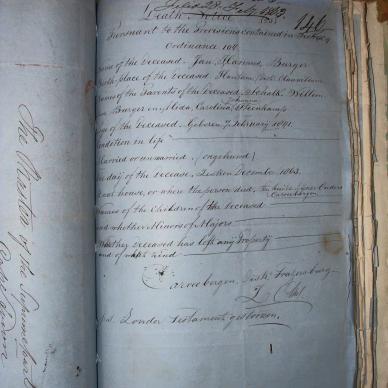 Filed 28 July 1863.
146
Death Notice
Pursuant to the Provisions contained in Section 9
Ordinance 104.
Name of the Deceased Jan Harms Burger
Birth place of the Deceased Hantam Dist. Clanwilliam
Names of the Parents of the Deceased Schalk Willem
Burger en Alida, Carolina, Johanna Steenkamp
Age of the Deceased Geboren 7 February 1841.
Condition in life
Married or unmarried (ongehuwd)
The day of the decease, December 1863.
At what house, or where the person died, Ten huize zyner Ouders
Names of the Children of the Deceased
and whether Minors or Majors
Whether Deceased has left any Property
and of what kind
Dist. Frazersburg
Zonder Testament gestorven.
The Master of the Supreme Court